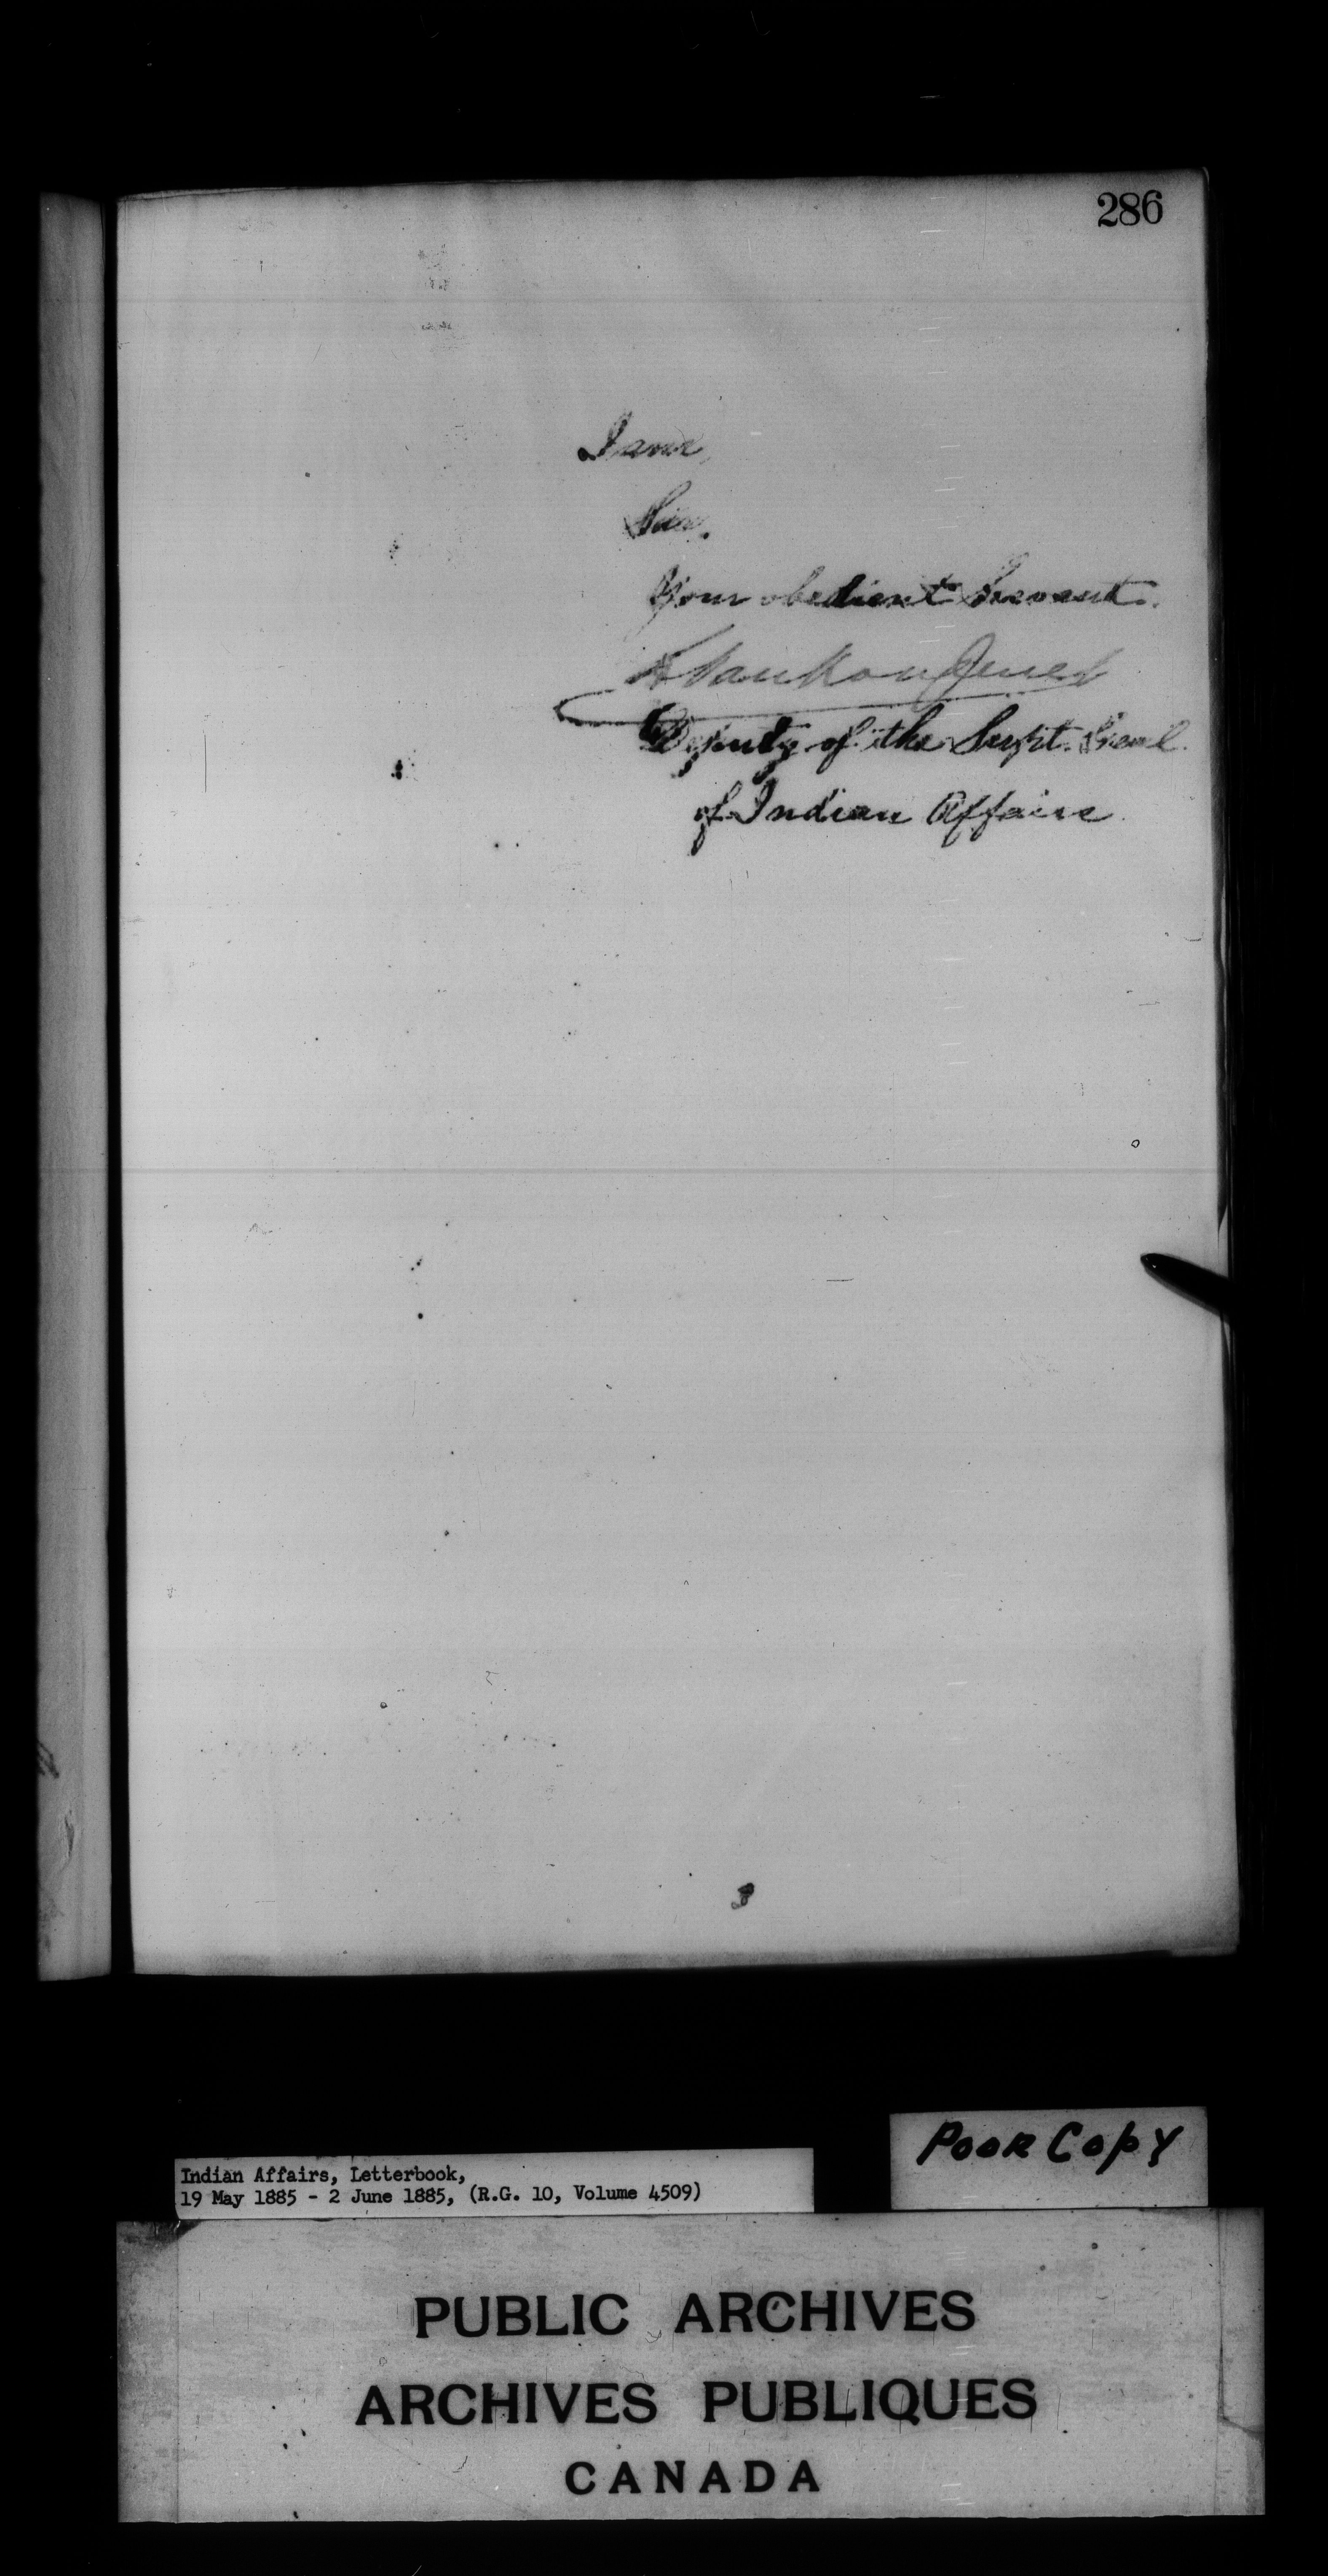 286
I am,
Sir,
Your obedient Servant.
L VanKoughnet
Deputy of the Supt. Genl.
of Indian Affairs
3
Poor Copy
Indian Affairs, Letterbook,
19 May 1885 - 2 June 1885, (R.G. 10, Volume 4509)
PUBLIC ARCHIVES
ARCHIVES PUBLIQUES
CANADA